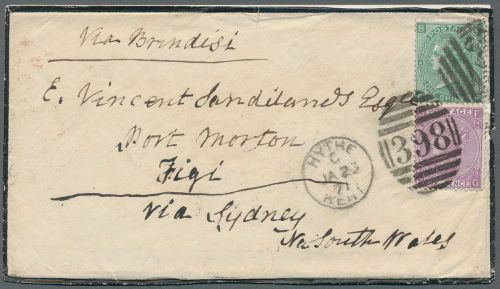 Via Brindisi
E. Vincent Sandilands Esqre
Port Morton
Fiji
via Sydney
Na South Wales
HYTHE
C
JA 23
71
KENT
398
B
POSTAGE
F
PENCE
G